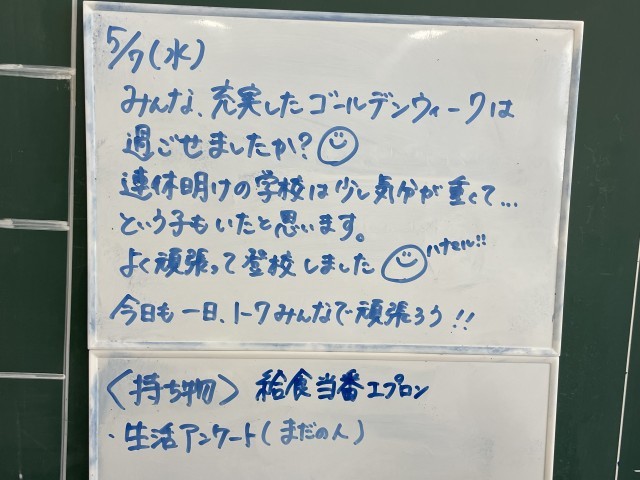 5/7(水)
みんな、充実したゴールデンウィークは
過ごせましたか?
連休明けの学校は少し気分が重くて...
という子もいたと思います。
よく頑張って登校しました ハナマル!!
今日も一日、1-7みんなで頑張ろう!!
〈持ち物〉 給食当番エプロン
・生活アンケート(まだの人)